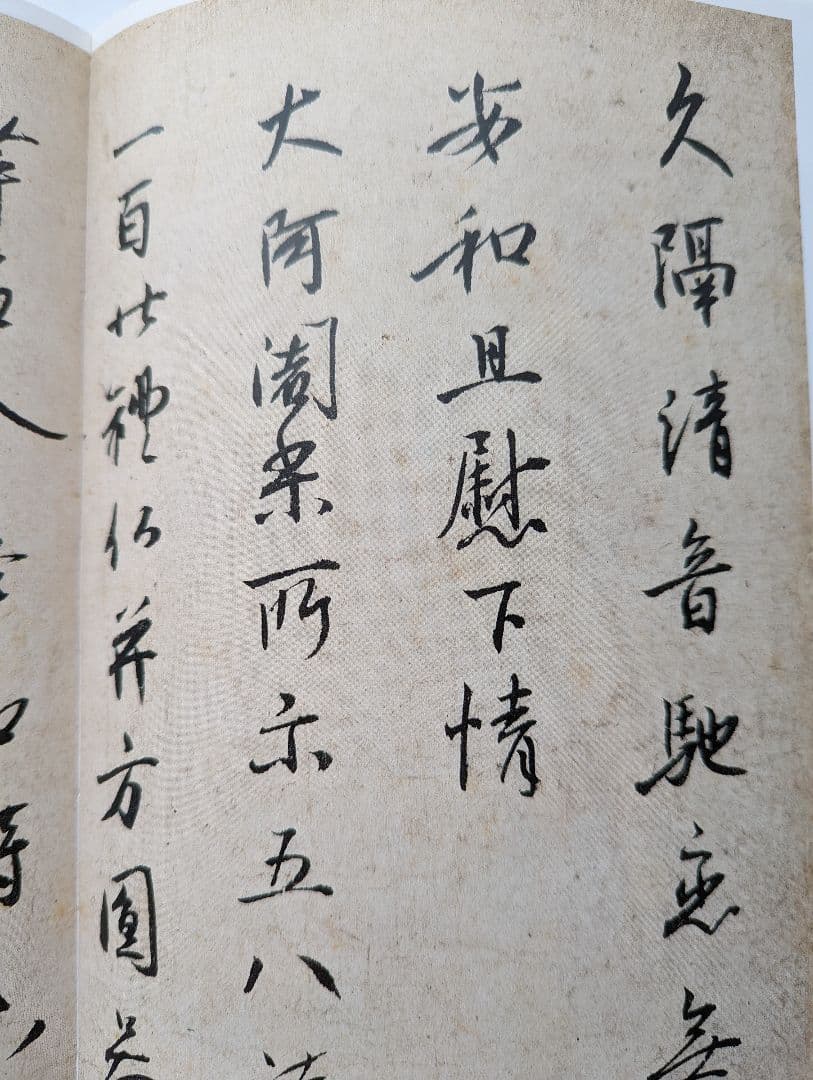 久隔清音馳恋無
安和且慰下情
大阿闍梨所示五八
一百廿禮仏并方圓